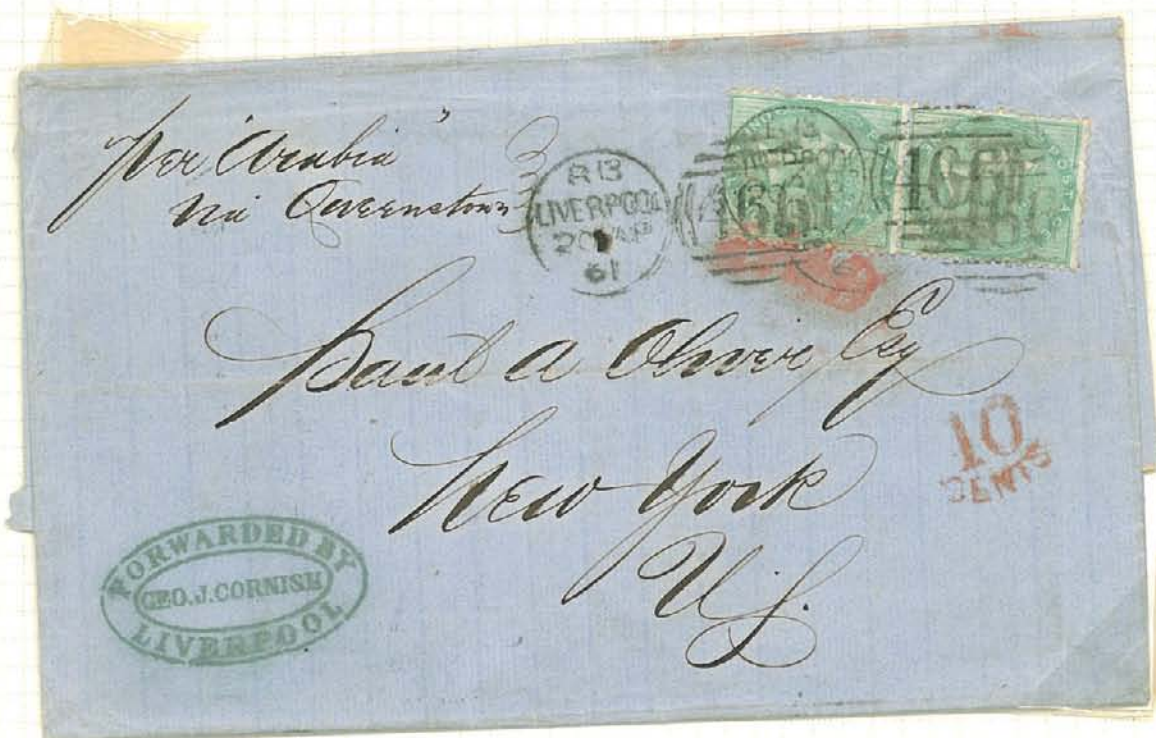 per "Arabia"
via Queenstown
R 13
LIVERPOOL
20 AP
61
466
466
Paul A Oliver Esq
New York
U.S.
10
CENTS
FORWARDED BY
GEO. J. CORNISH
LIVERPOOL